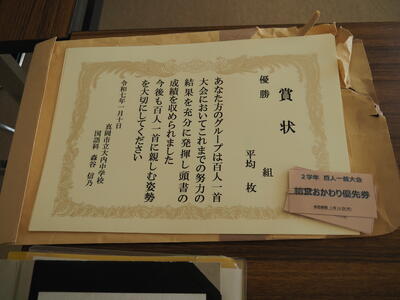 賞状
優勝 組
平均 枚
あなた方のグループは百人一首
大会においてこれまでの努力の
結果を充分に発揮し頭書の
成績を収められました
今後も百人一首に親しむ姿勢
を大切にしてください
令和七年一月十日
真岡市立大内中学校
国語科 森谷 信乃
2学年 百人一首大会
給食おかわり優先券